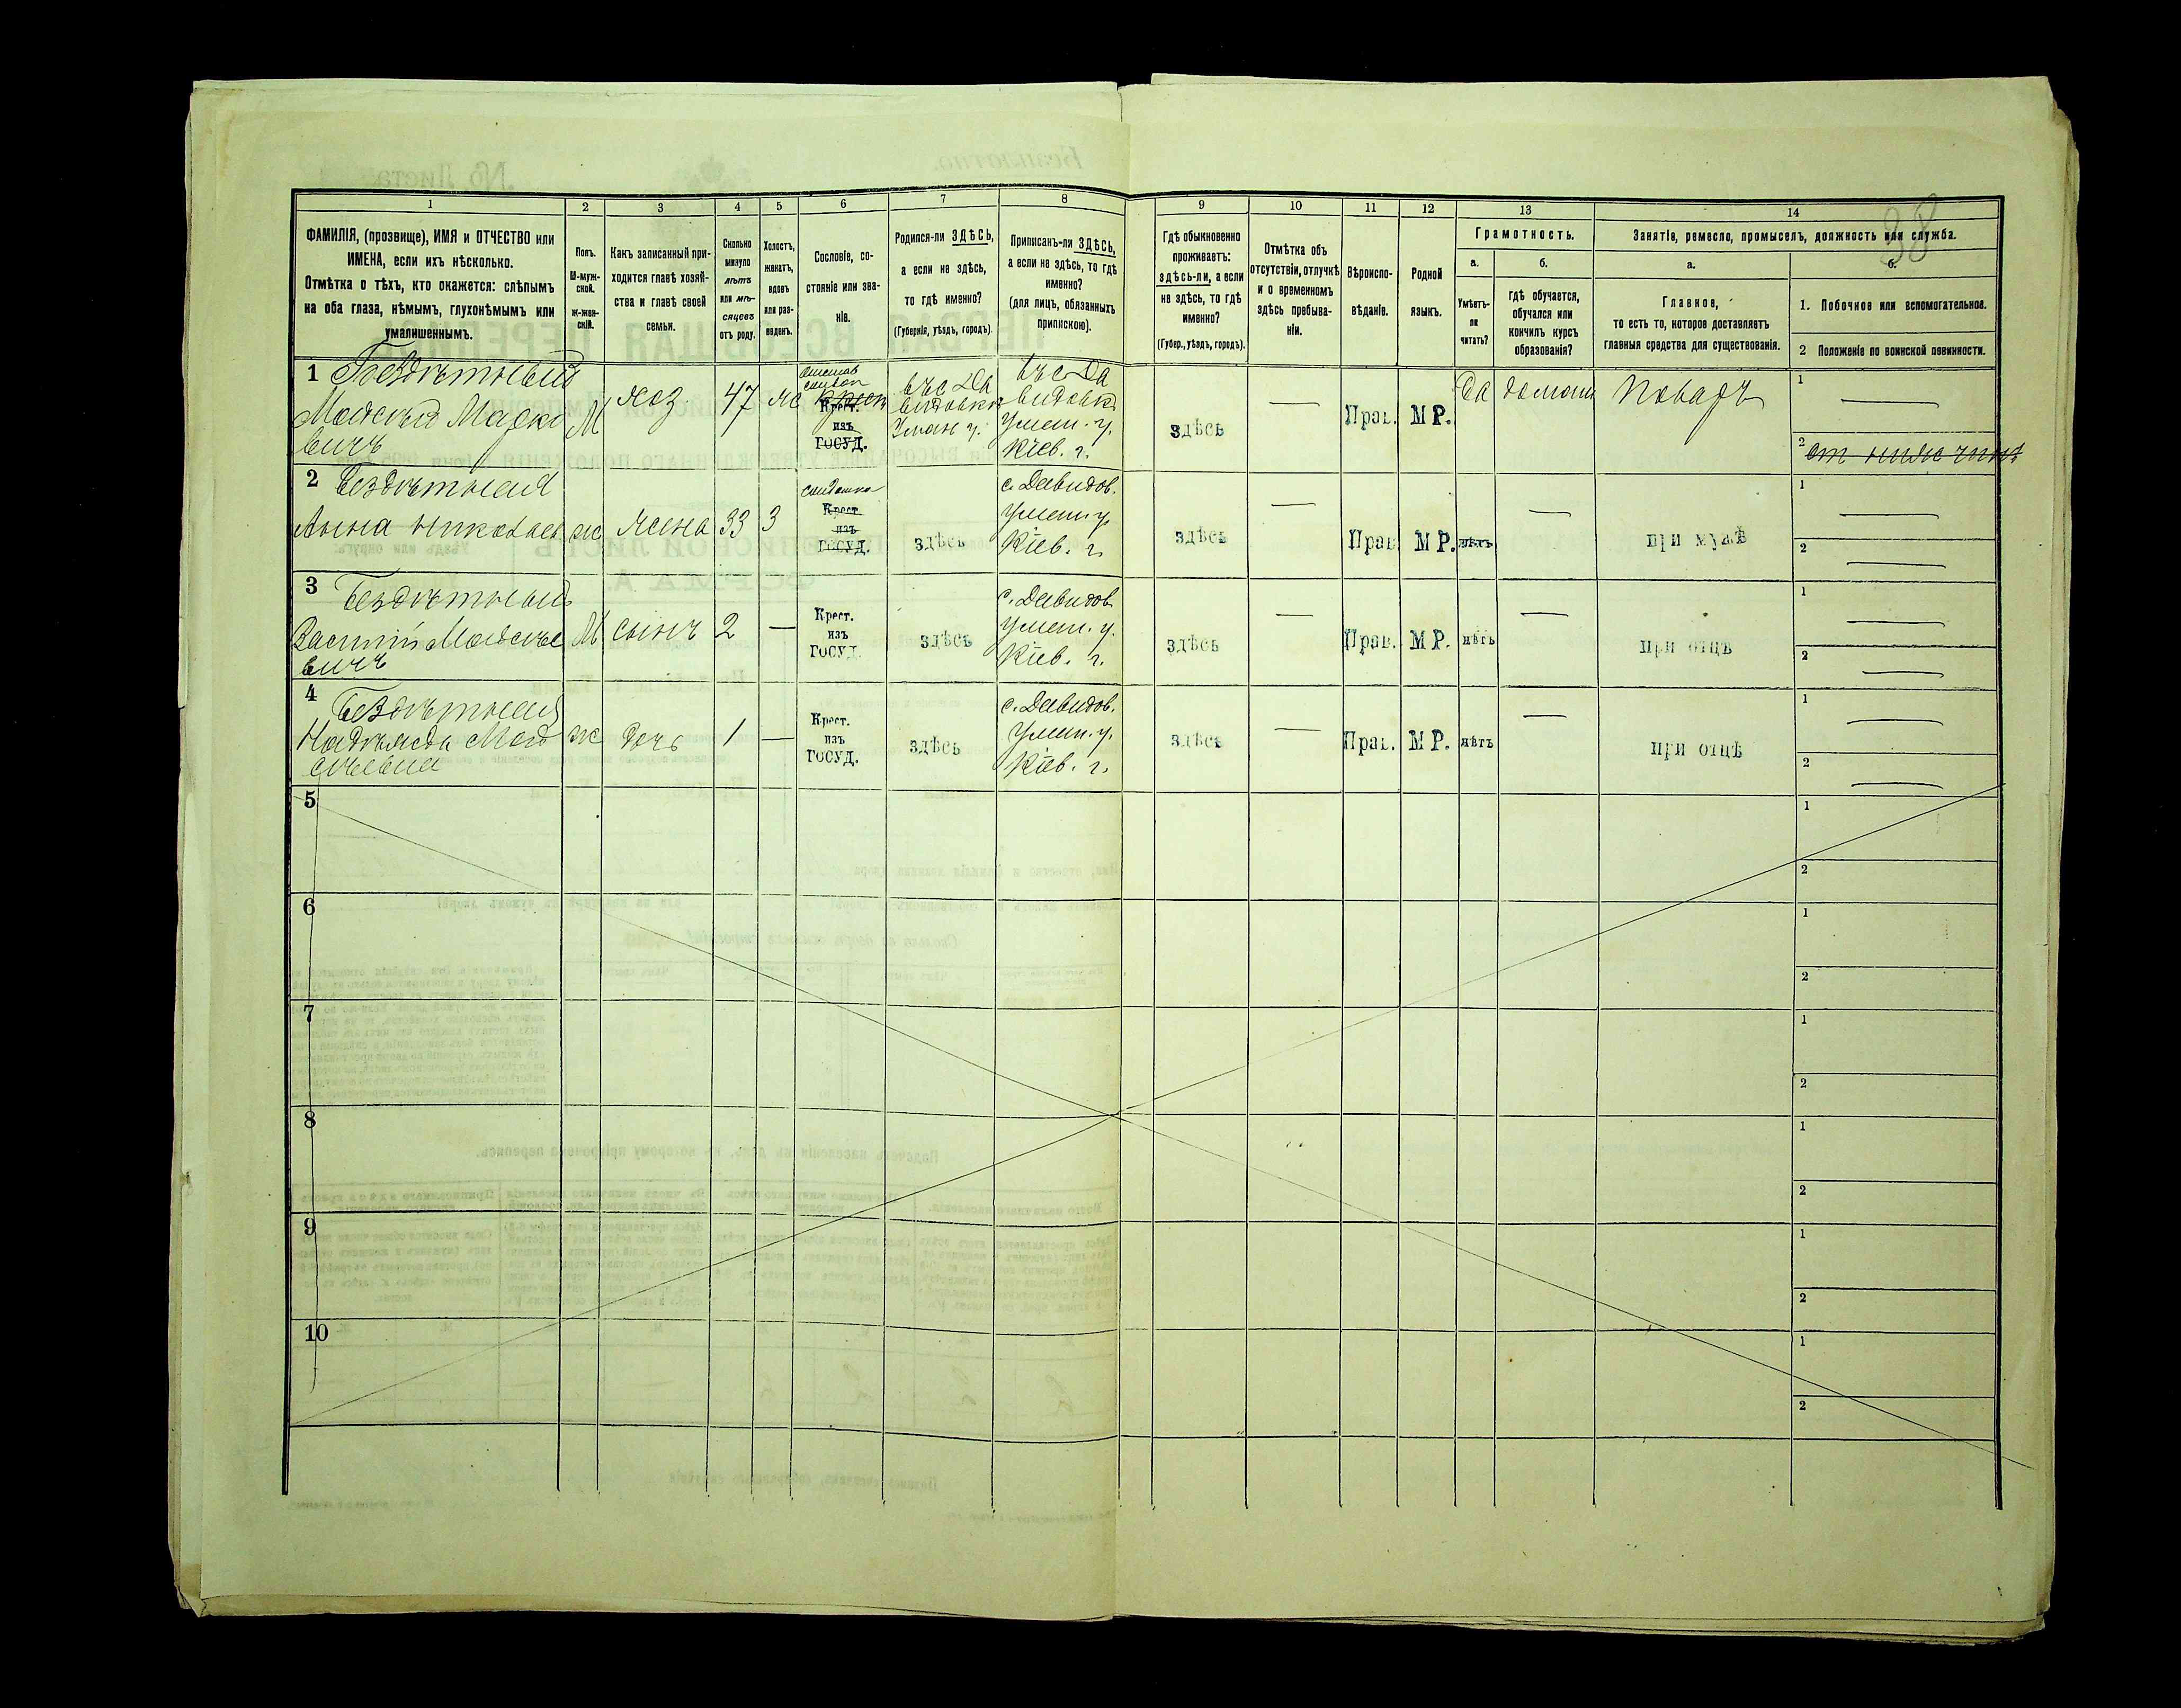 38
1 2 3 4 5 6 7 8 9 10 11 12 13 14
ФАМИЛІЯ, (прозвище), ИМЯ и ОТЧЕСТВО или
ИМЕНА, если ихъ нѣсколько.
Отмѣтка о тѣхъ, кто окажется: слѣпымъ
на оба глаза, нѣмымъ, глухонѣмымъ или
умалишеннымъ.
Полъ.
М-муж-
ской.
Ж-жен-
скій.
Какъ записанный при-
ходится главѣ хозяй-
ства и главѣ своей
семьи.
Сколько
минуло
лѣтъ
или мѣ-
сяцевъ
отъ роду.
Холостъ,
женатъ,
вдовъ
или раз-
веденъ.
Сословіе, со-
стояніе или зва-
ніе.
Родился-ли ЗДѢСЬ,
а если не здѣсь,
то гдѣ именно?
(Губернія, уѣздъ, городъ).
Приписанъ-ли ЗДѢСЬ,
а если не здѣсь, то гдѣ
именно?
(для лицъ, обязанныхъ
припискою).
Гдѣ обыкновенно
проживаетъ:
здѣсь-ли, а если
не здѣсь, то гдѣ
именно?
(Губер., уѣздъ, городъ).
Отмѣтка объ
отсутствіи, отлучкѣ
и о временномъ
здѣсь пребыва-
ніи.
Вѣроиспо-
вѣданіе.
Родной
языкъ.
Грамотность.
а.
б.
Умѣетъ-
ли
читать?
гдѣ обучается,
обучался или
кончилъ курсъ
образованія?
Занятіе, ремесло, промыселъ, должность или служба.
а.
б.
Главное,
то есть то, которое доставляетъ
главныя средства для существованія.
1. Побочное или вспомогательное.
2 Положеніе по воинской повинности.
1 Бездѣтный
Моѵсей Марко
вичъ
М
хоз
47
же
Крест.
изъ
ГОСУД.
въ с Да
видовкѣ
Уман у.
въ с Да
видовк
Уман. у.
Кіев. г.
здѣсь
—
Прав.
МР.
Да
дома
Поваръ
1 —
2 от ниж чинъ
2 Бездѣтная
Анна Николаев
ж
жена
33
З
солдатка
Крест
изъ
ГОСУД.
здѣсь
с. Давидов.
Уман. у.
Кіев. г.
здѣсь
—
Прав.
МР.
нѣтъ
—
при мужѣ
1
2 —
3 Бездѣтный
Василій Моѵсее
вичъ
М
сынъ
2
—
Крест.
изъ
ГОСУД.
здѣсь
с. Давидов
Уман. у.
Кіев. г.
здѣсь
—
Прав.
МР.
нѣтъ
—
при отцѣ
1 —
2 —
4 Бездѣтная
Надежда Моѵ
сеевна
ж
дочь
1
—
Крест.
изъ
ГОСУД.
здѣсь
с. Давидов.
Уман. у.
Кіев. г.
здѣсь
—
Прав.
МР.
нѣтъ
—
при отцѣ
1 —
2 —
5
1
2
6
1
2
7
1
2
8
1
2
9
1
2
10
1
2